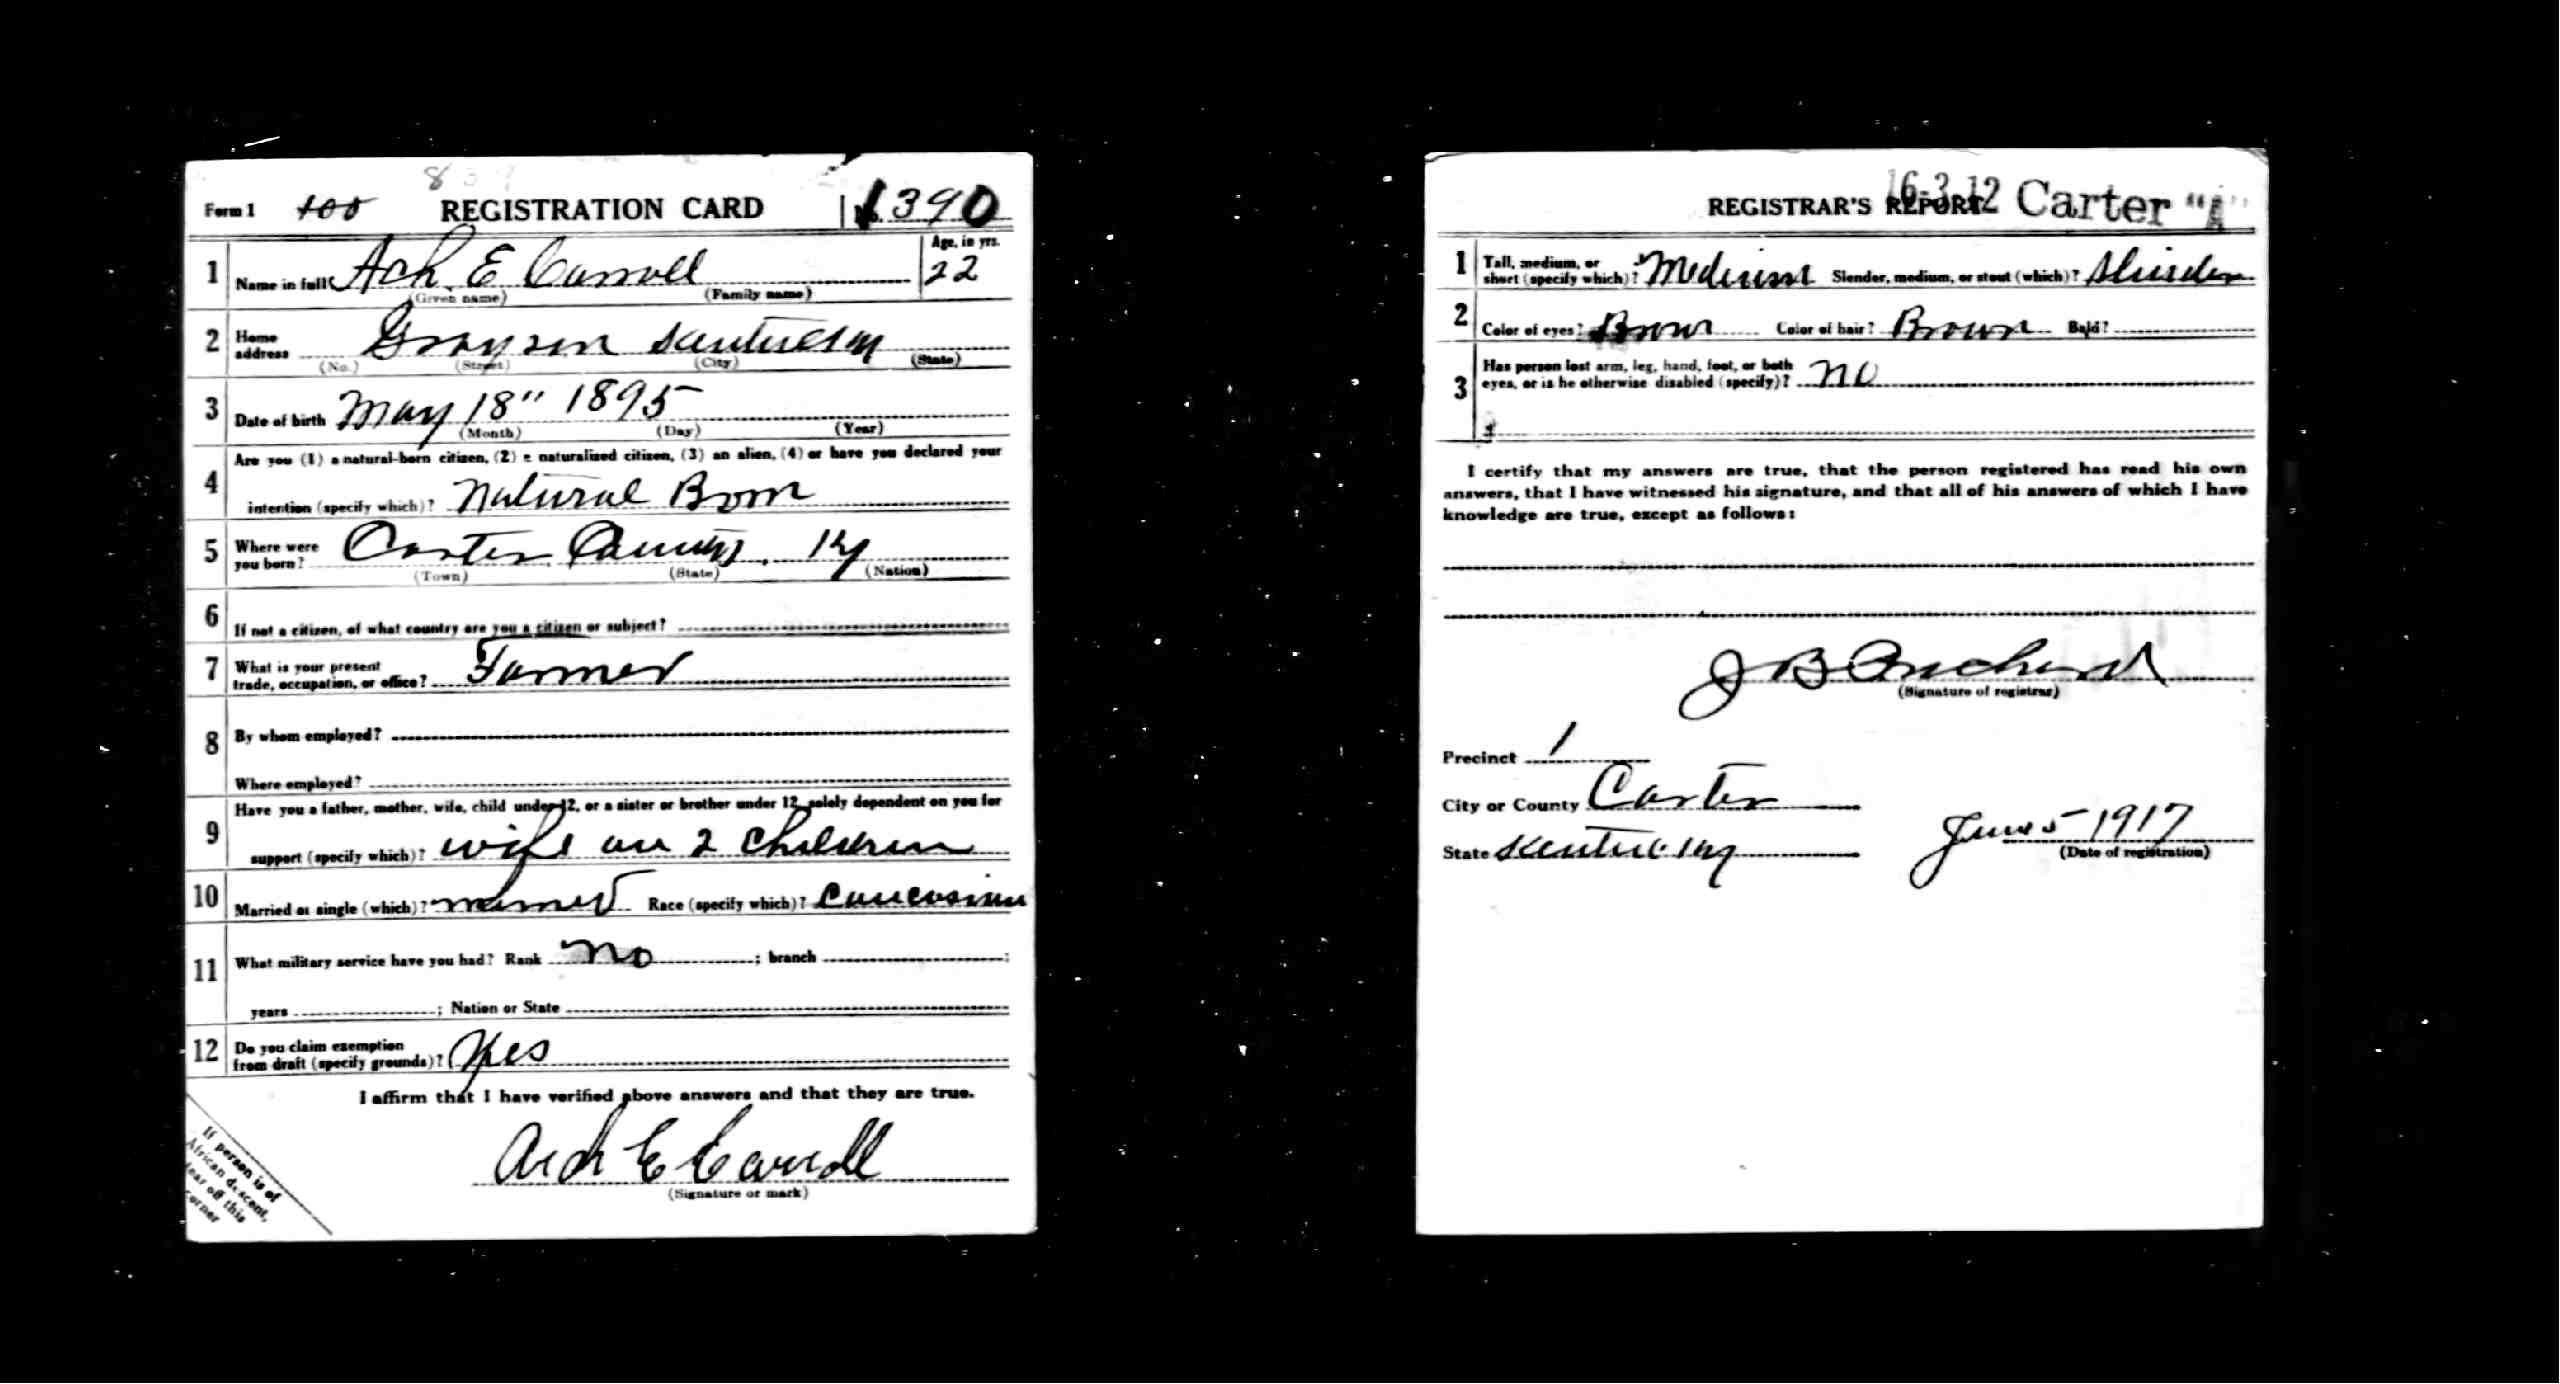 Form 1 100 REGISTRATION CARD No. 390
1 Name in full Ach. E Carroll Age, in yrs. 22
(Given name) (Family name)
2 Home address Grayson Kentucky
(No.) (Street) (City) (State)
3 Date of birth May 18" 1895
(Month) (Day) (Year)
4 Are you (1) a natural-born citizen, (2) a naturalized citizen, (3) an alien, (4) or have you declared your
intention (specify which)? Natural Born
5 Where were you born? Carter County, Ky
(Town) (State) (Nation)
6 If not a citizen, of what country are you a citizen or subject?
7 What is your present trade, occupation, or office? Farmer
8 By whom employed?
Where employed?
9 Have you a father, mother, wife, child under 12, or a sister or brother under 12, solely dependent on you for
support (specify which)? wife and 2 children
10 Married or single (which)? married Race (specify which)? Caucasian
11 What military service have you had? Rank no ; branch ;
years ; Nation or State
12 Do you claim exemption from draft (specify grounds)? Yes
I affirm that I have verified above answers and that they are true.
Arch E Carroll
(Signature or mark)
If person is of
African descent,
tear off this
corner
16-3-12 Carter "A"
REGISTRAR'S REPORT
1 Tall, medium, or short (specify which)? Medium Slender, medium, or stout (which)? Slender
2 Color of eyes? Brown Color of hair? Brown Bald?
3 Has person lost arm, leg, hand, foot, or both
eyes, or is he otherwise disabled (specify)? no
I certify that my answers are true, that the person registered has read his own
answers, that I have witnessed his signature, and that all of his answers of which I have
knowledge are true, except as follows:
J B Prichard
(Signature of registrar)
Precinct 1
City or County Carter
State Kentucky June 5 1917
(Date of registration)